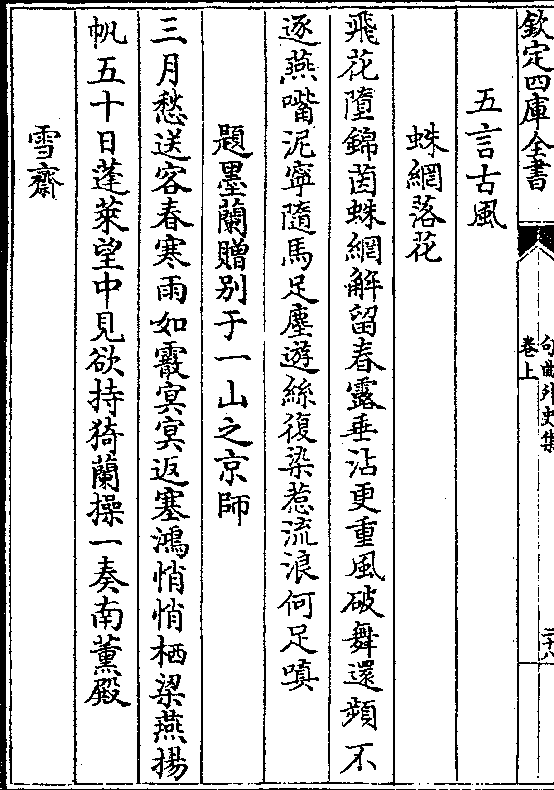 欽定四庫全書
句曲外史集
卷上
三十八
五言古風
蛛網落花
飛花墮錦茵蛛網解留春露垂沾更重風破舞還頻不
逐燕嘴泥寧隨馬足塵遊絲復染惹流浪何足嗔
題墨蘭贈别于一山之京師
三月愁送客春寒雨如霰㝠㝠返塞鴻悄悄栖梁燕揚
帆五十日蓬萊望中見欲持猗蘭操一奏南薫殿
雪齋